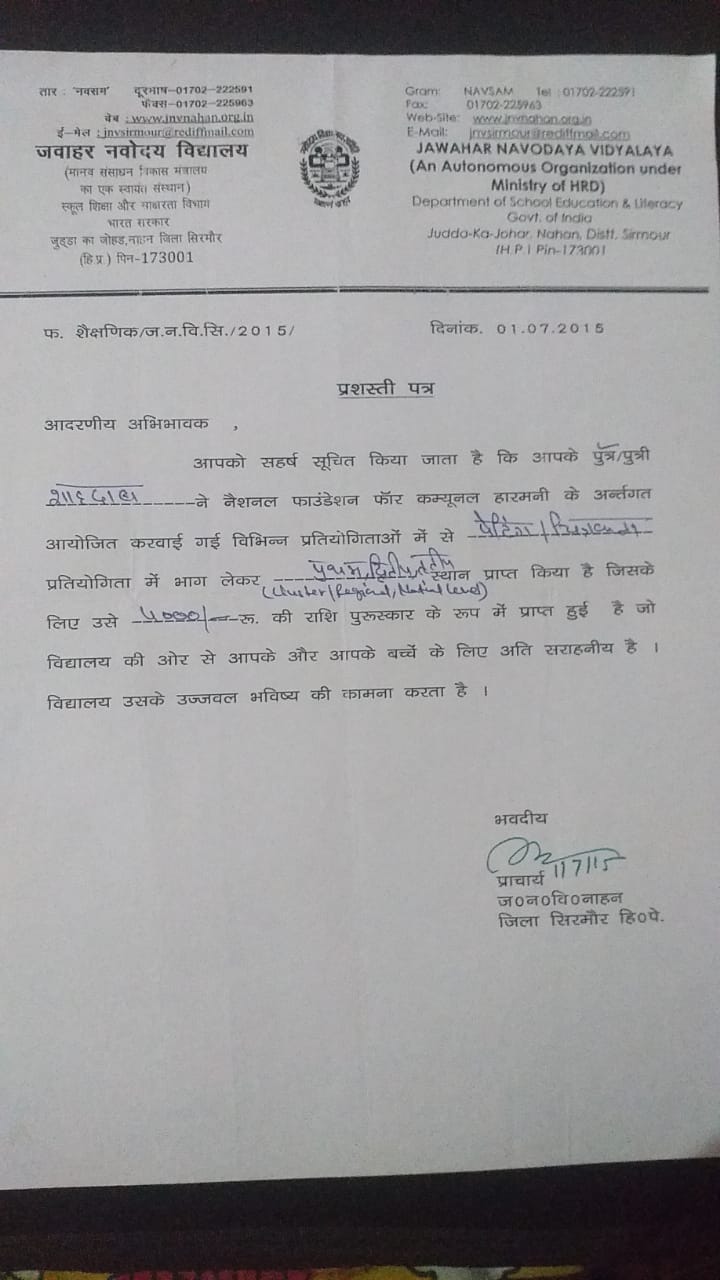 तार : 'नवसम' दूरभाष-01702-222591
फैक्स-01702-225963
वेब : www.jnvnahan.org.in
ई-मेल : jnvsirmour@rediffmail.com
जवाहर नवोदय विद्यालय
(मानव संसाधन विकास मंत्रालय
का एक स्वायत्त संस्थान)
स्कूल शिक्षा और साक्षरता विभाग
भारत सरकार
जुड्डा का जोहड,नाहन जिला सिरमौर
(हि.प्र.) पिन-173001
Gram: NAVSAM Tel :01702-222591
Fax: 01702-225963
Web-Site: www.jnvnahan.org.in
E-Mail: jnvsirmour@rediffmail.com
JAWAHAR NAVODAYA VIDYALAYA
(An Autonomous Organization under
Ministry of HRD)
Department of School Education & Literacy
Govt. of India
Judda-Ka-Johar, Nahan, Distt. Sirmour
(H.P.) Pin-173001
फ. शैक्षणिक/ज.न.वि.सि./2015/ दिनांक. 01.07.2015
प्रशस्ती पत्र
आदरणीय अभिभावक ,
आपको सहर्ष सूचित किया जाता है कि आपके पुत्र/पुत्री
ने नैशनल फाउंडेशन फॉर कम्यूनल हारमनी के अर्न्तगत
आयोजित करवाई गई विभिन्न प्रतियोगिताओं में से पेंटिंग /
प्रतियोगिता में भाग लेकर प्रथम, द्वितीय, तृतीय स्थान प्राप्त किया है जिसके
(Cluster/Regional, National level)
लिए उसे 5000/- रू. की राशि पुरूस्कार के रूप में प्राप्त हुई है जो
विद्यालय की ओर से आपके और आपके बच्चें के लिए अति सराहनीय है ।
विद्यालय उसके उज्जवल भविष्य की कामना करता है ।
भवदीय
1/7/15
प्राचार्य
ज0न0वि0नाहन
जिला सिरमौर हि0पे.